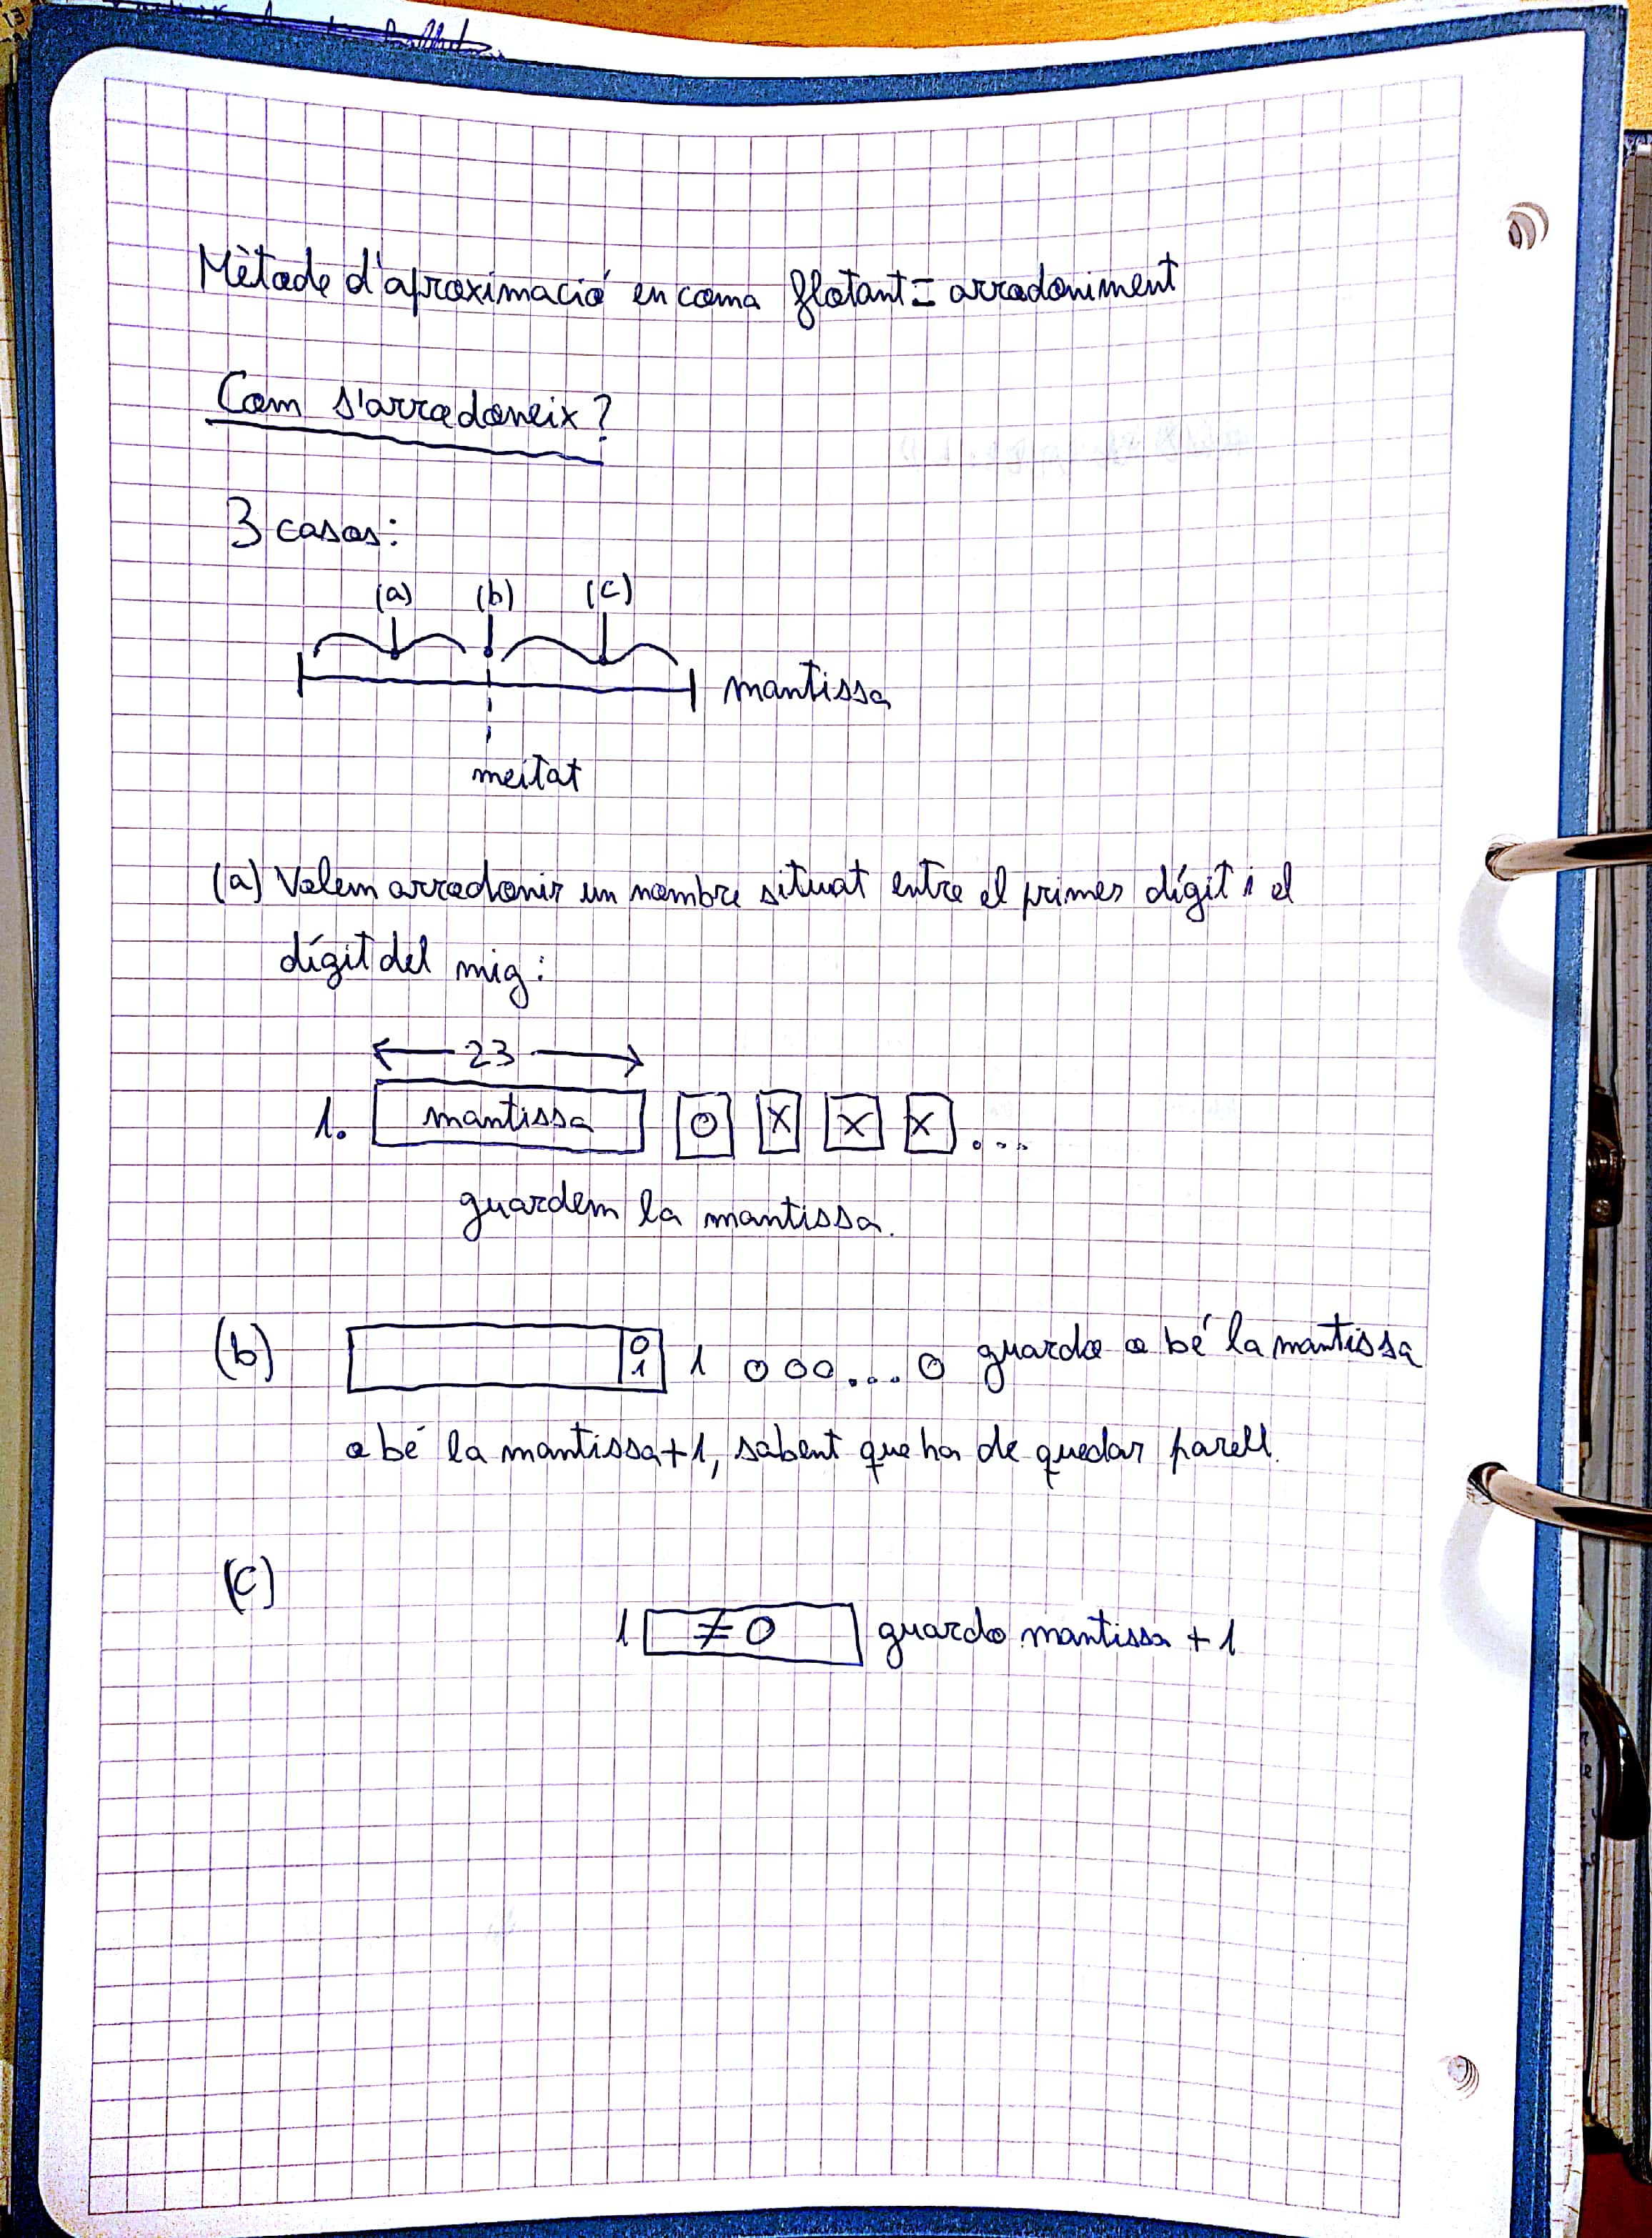 Mètode d'aproximació en coma flotant = arrodoniment
Com s'arrodoneix?
3 casos:
(a) (b) (c)
mantissa
meitat
(a) Volem arrodonir un nombre situat entre el primer dígit i el
dígit del mig:
23
1. mantissa 0 X X X ...
guardem la mantissa.
(b) 0 1 1 000...0 guardo o bé la mantissa
o bé la mantissa+1, sabent que ha de quedar parell.
(c)
1 ≠0 guardo mantissa + 1